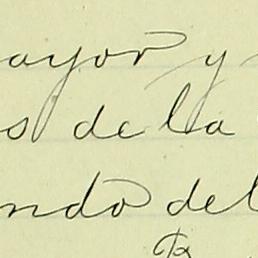 ayor y
s de la
ndo del